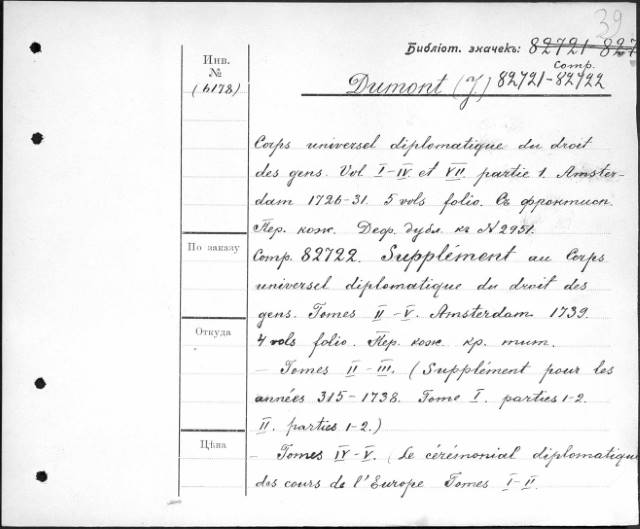 39
Библіот. значекъ: 82721-827
Comp.
Dumont (J.) 82721-82722
Инв.
№
(6178)
Corps universel diplomatique du droit
des gens. Vol I-IV et VII. partie 1. Amster-
dam 1726-31. 5 vols folio. Съ фронтисп.
Пер. кож. Деф. дубл. къ N 2951.
По заказу
Comp. 82722. Supplément au Corps
universel diplomatique du droit des
gens. Tomes II-V. Amsterdam 1739.
Откуда
4 vols folio. Пер. кож. кр. тит.
- Tomes II-III. (Supplément pour les
années 315-1738. Tome I. parties 1-2.
II. parties 1-2.)
Цѣна
- Tomes IV-V. (Le cérémonial diplomatique
des cours de l'Europe Tomes I-II.